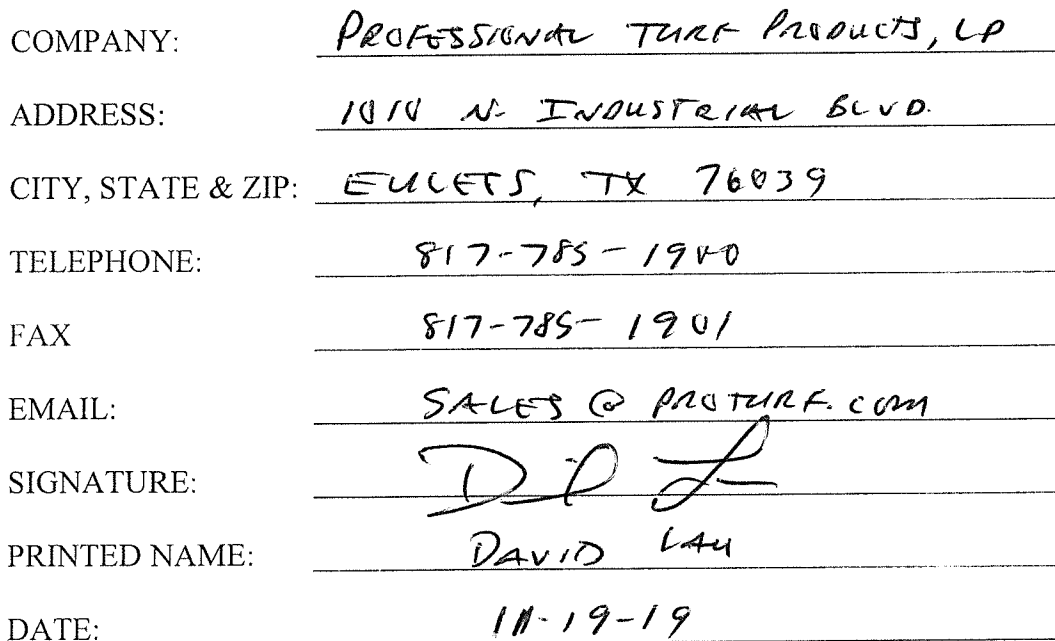 COMPANY: PROFESSIONAL TURF PRODUCTS, LP
ADDRESS: 1010 N. INDUSTRIAL BLVD.
CITY, STATE & ZIP: EULESS, TX 76039
TELEPHONE: 817-785-1900
FAX 817-785-1901
EMAIL: SALES@PROTURF.COM
SIGNATURE:
PRINTED NAME: DAVID LAU
DATE: 11-19-19